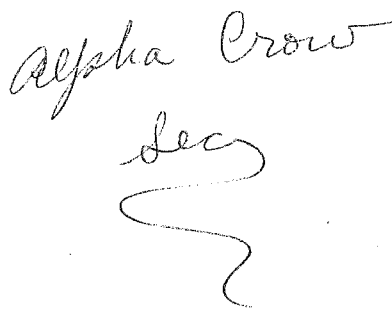 Alpha Crow
Secy